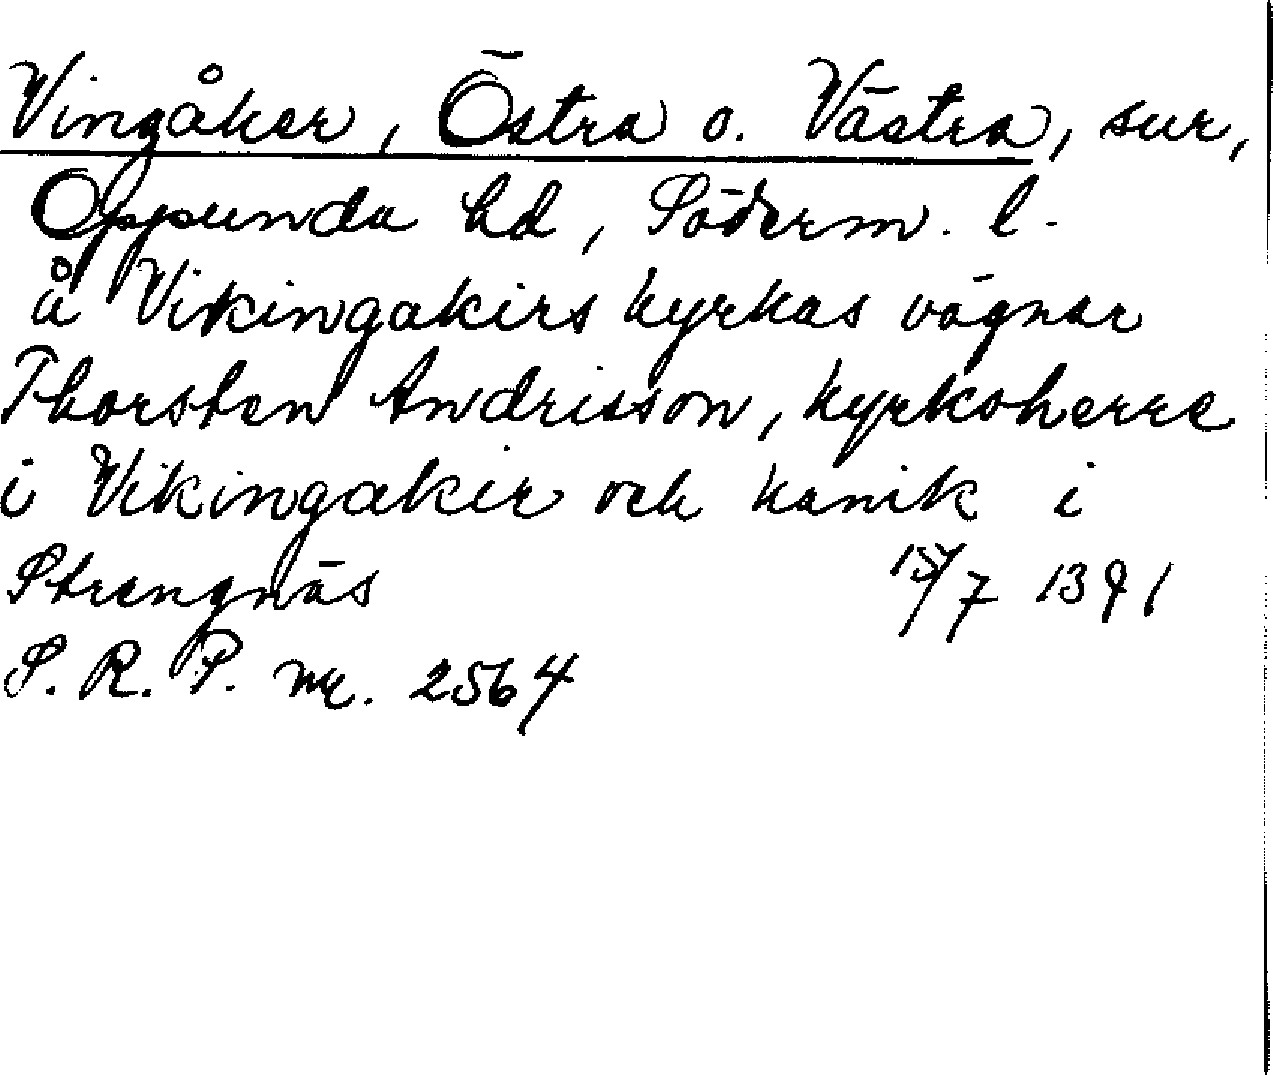 Vingåker, Östra o. Västra, snr,
Oppunda hd, Söderm. l.
å Vikingakirs kyrkas vägnar
Thorsten Andrisson, kyrkoherre
i Vikingakir och kanik i
Strengnäs 15/7 1391
S. R. P. nr. 2564